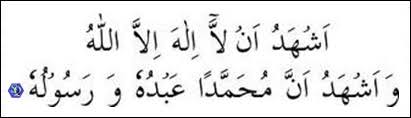 اَشْهَدُ اَنْ لاَّ اِلٰهَ اِلاَّ اللّٰهُ
وَ اَشْهَدُ اَنَّ مُحَمَّدًا عَبْدُهٗ وَ رَسُوْلُهٗ